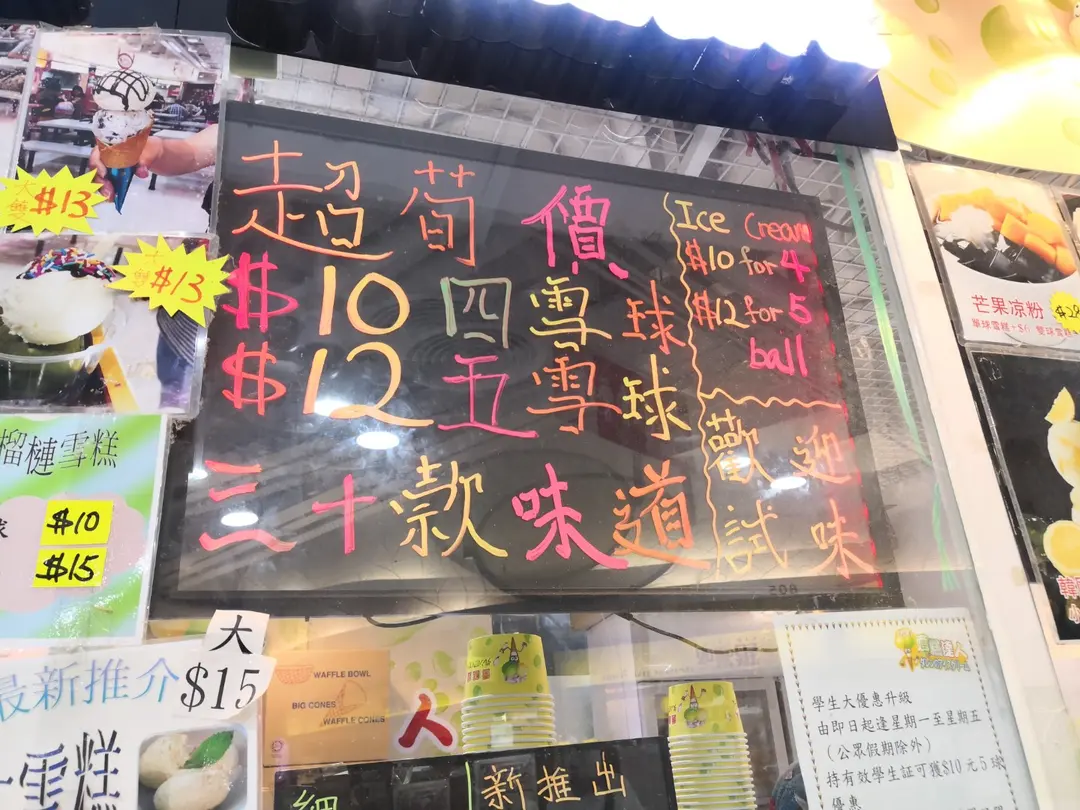 大
雙
$13
大
$13
榴槤雪糕
$10
$15
最新推介
大
$15
雪糕
超荀價
$10四雪球
$12五雪球
三十款味道
Ice Cream
$10 for 4
$12 for 5
ball
歡迎
試味
WAFFLE BOWL
BIG CONES
WAFFLE CONES
人
新推出
芒果凉粉
學生大優惠升級
由即日起逢星期一至星期五
（公眾假期除外）
持有效學生証可獲$10元5球
優惠